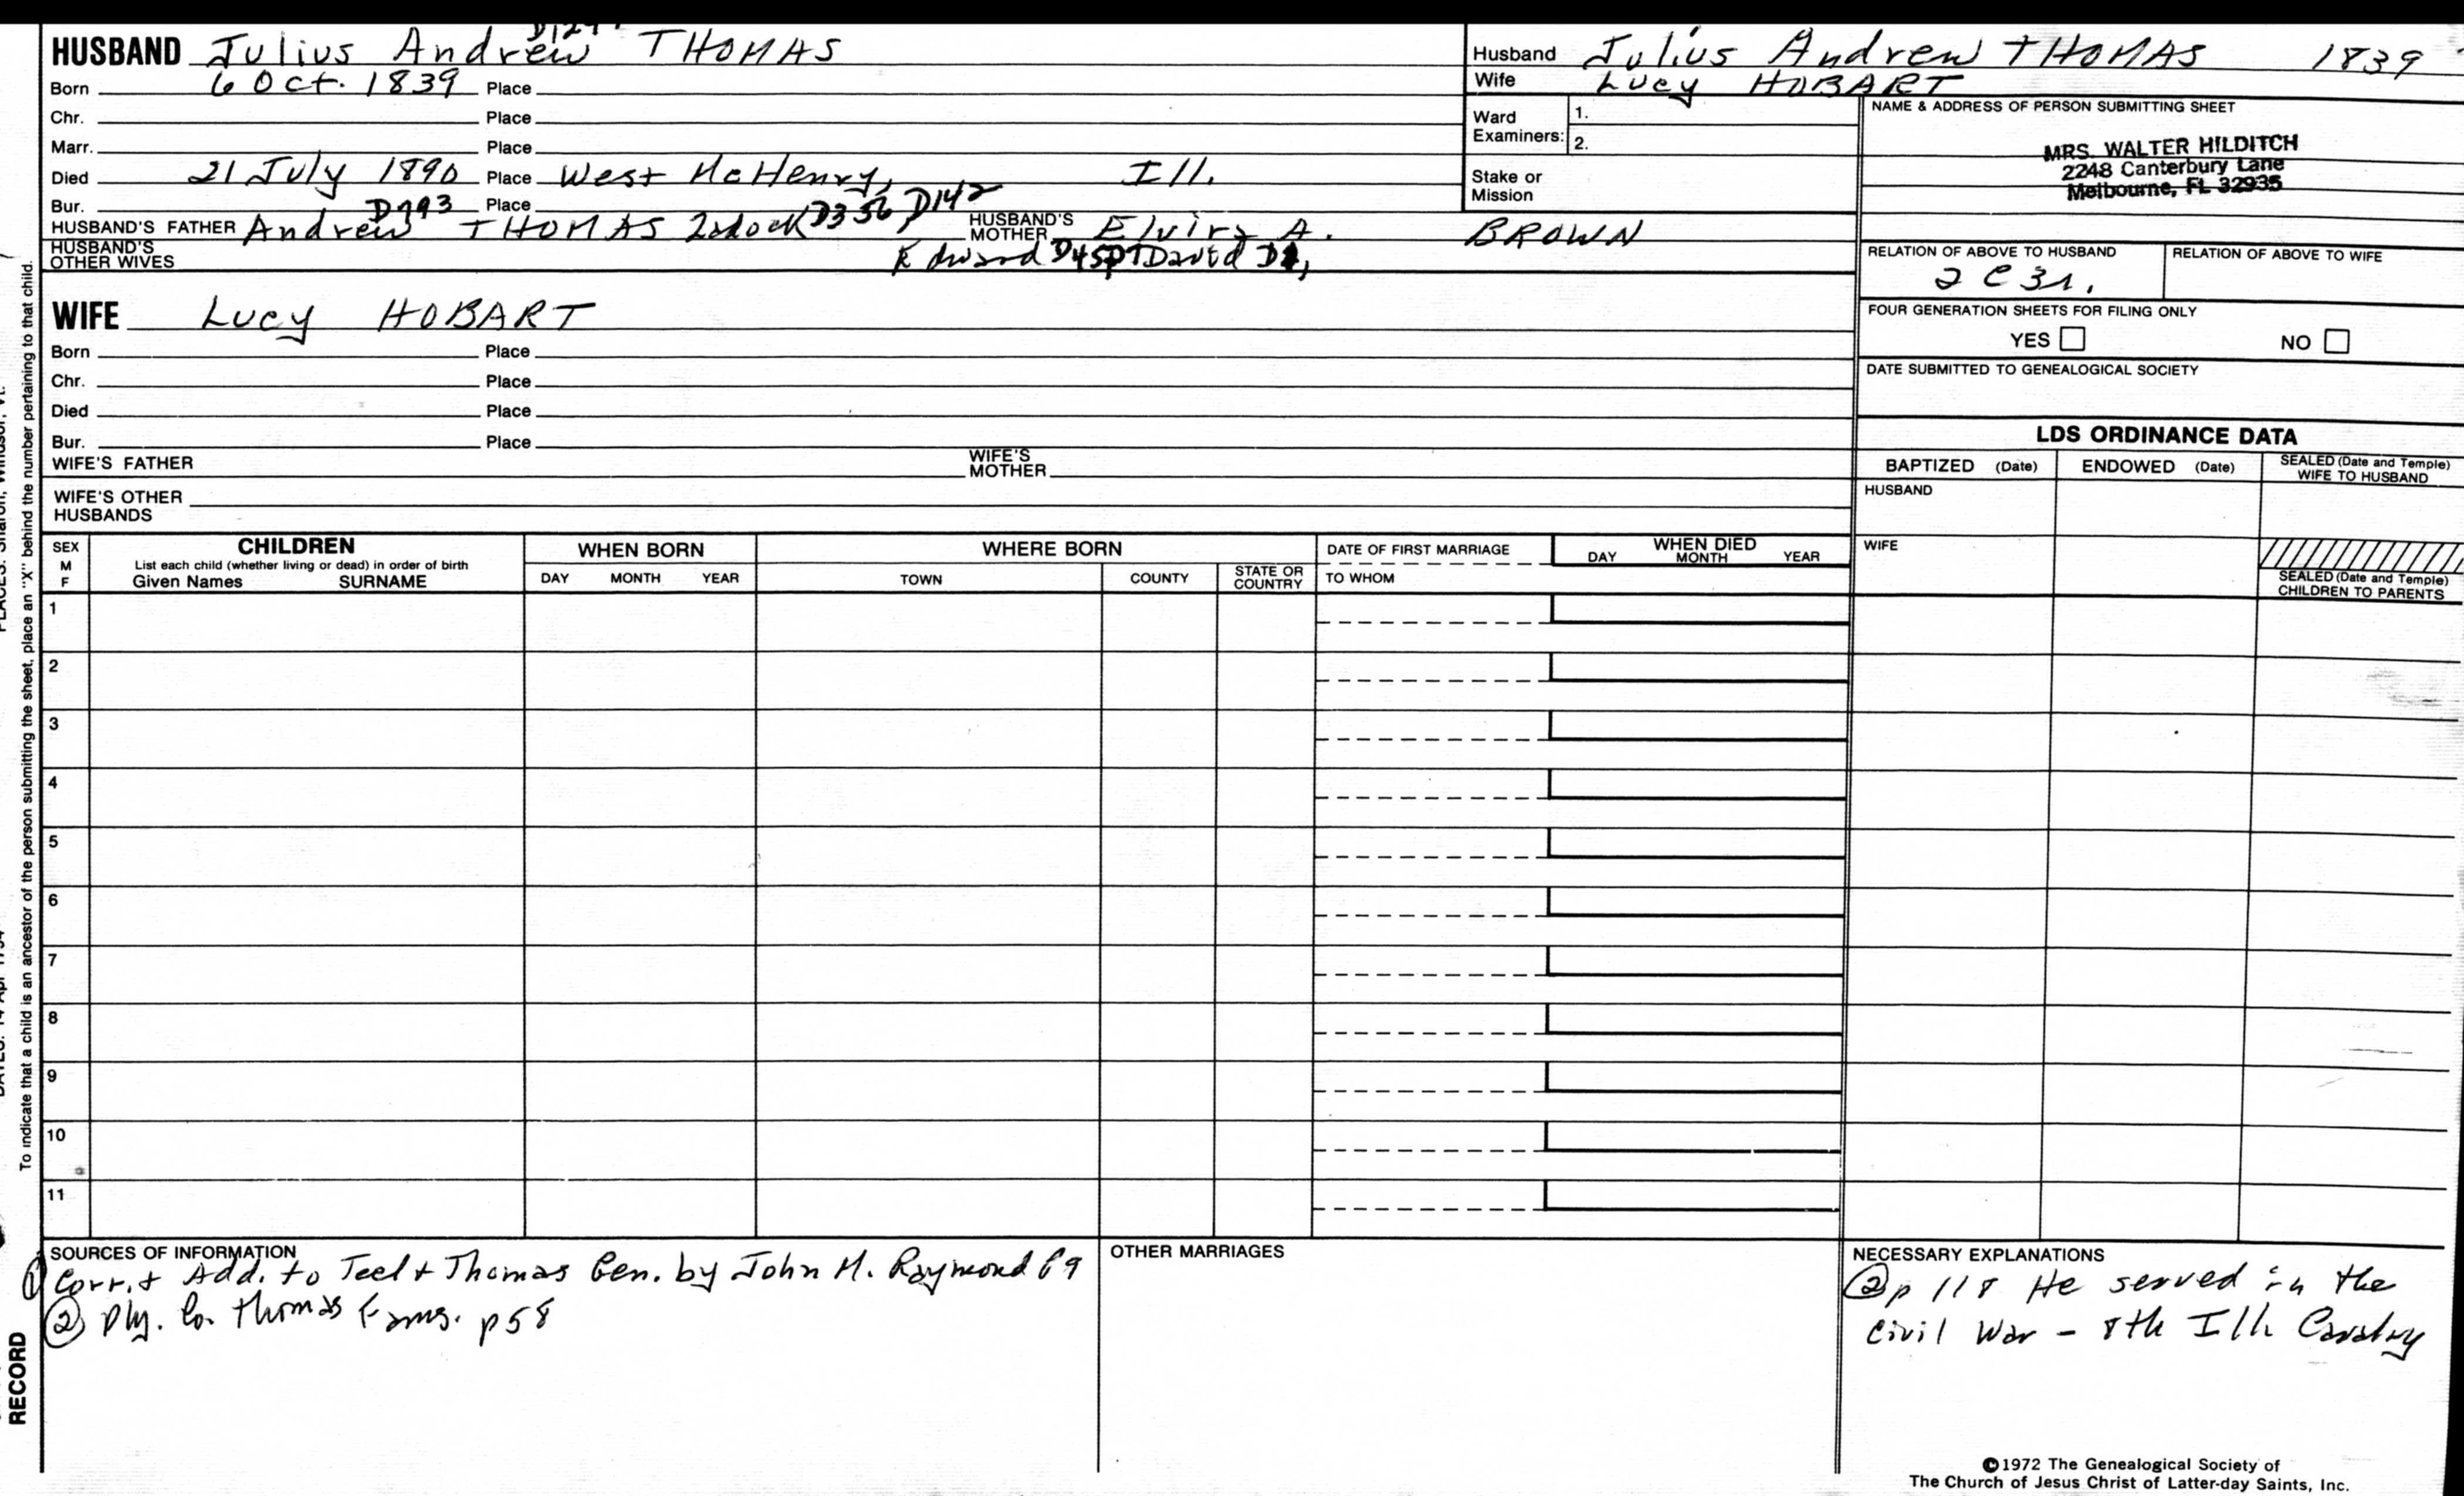 HUSBAND Julius Andrew THOMAS
Born 6 Oct. 1839 Place
Chr. Place
Marr. Place
Died 21 July 1890 Place West McHenry, Ill.
Bur. Place
D793 D356 D142
HUSBAND'S FATHER Andrew THOMAS HUSBAND'S MOTHER Elvira A. BROWN
HUSBAND'S OTHER WIVES
Edward David
WIFE Lucy HOBART
Born Place
Chr. Place
Died Place
Bur. Place
WIFE'S FATHER WIFE'S MOTHER
WIFE'S OTHER HUSBANDS
Husband Julius Andrew THOMAS 1839
Wife Lucy HOBART
Ward Examiners: 1.
2.
Stake or Mission
NAME & ADDRESS OF PERSON SUBMITTING SHEET
MRS. WALTER HILDITCH
2248 Canterbury Lane
Melbourne, FL 32935
RELATION OF ABOVE TO HUSBAND RELATION OF ABOVE TO WIFE
2 C 3r.
FOUR GENERATION SHEETS FOR FILING ONLY
YES NO
DATE SUBMITTED TO GENEALOGICAL SOCIETY
LDS ORDINANCE DATA
BAPTIZED (Date) ENDOWED (Date) SEALED (Date and Temple) WIFE TO HUSBAND
HUSBAND
WIFE
SEALED (Date and Temple) CHILDREN TO PARENTS
SEX M F
CHILDREN
List each child (whether living or dead) in order of birth
Given Names SURNAME
WHEN BORN
DAY MONTH YEAR
WHERE BORN
TOWN COUNTY STATE OR COUNTRY
DATE OF FIRST MARRIAGE
TO WHOM
WHEN DIED
DAY MONTH YEAR
1
2
3
4
5
6
7
8
9
10
11
SOURCES OF INFORMATION
① Corr. & Add. to Teel & Thomas Gen. by John M. Raymond p9
② Ply. Co. Thomas Fams. p58
OTHER MARRIAGES
NECESSARY EXPLANATIONS
② p 118 He served in the
Civil War - 8th Ill. Cavalry
©1972 The Genealogical Society of
The Church of Jesus Christ of Latter-day Saints, Inc.
To indicate that a child is an ancestor of the person submitting the sheet, place an "X" behind the number pertaining to that child.
RECORD